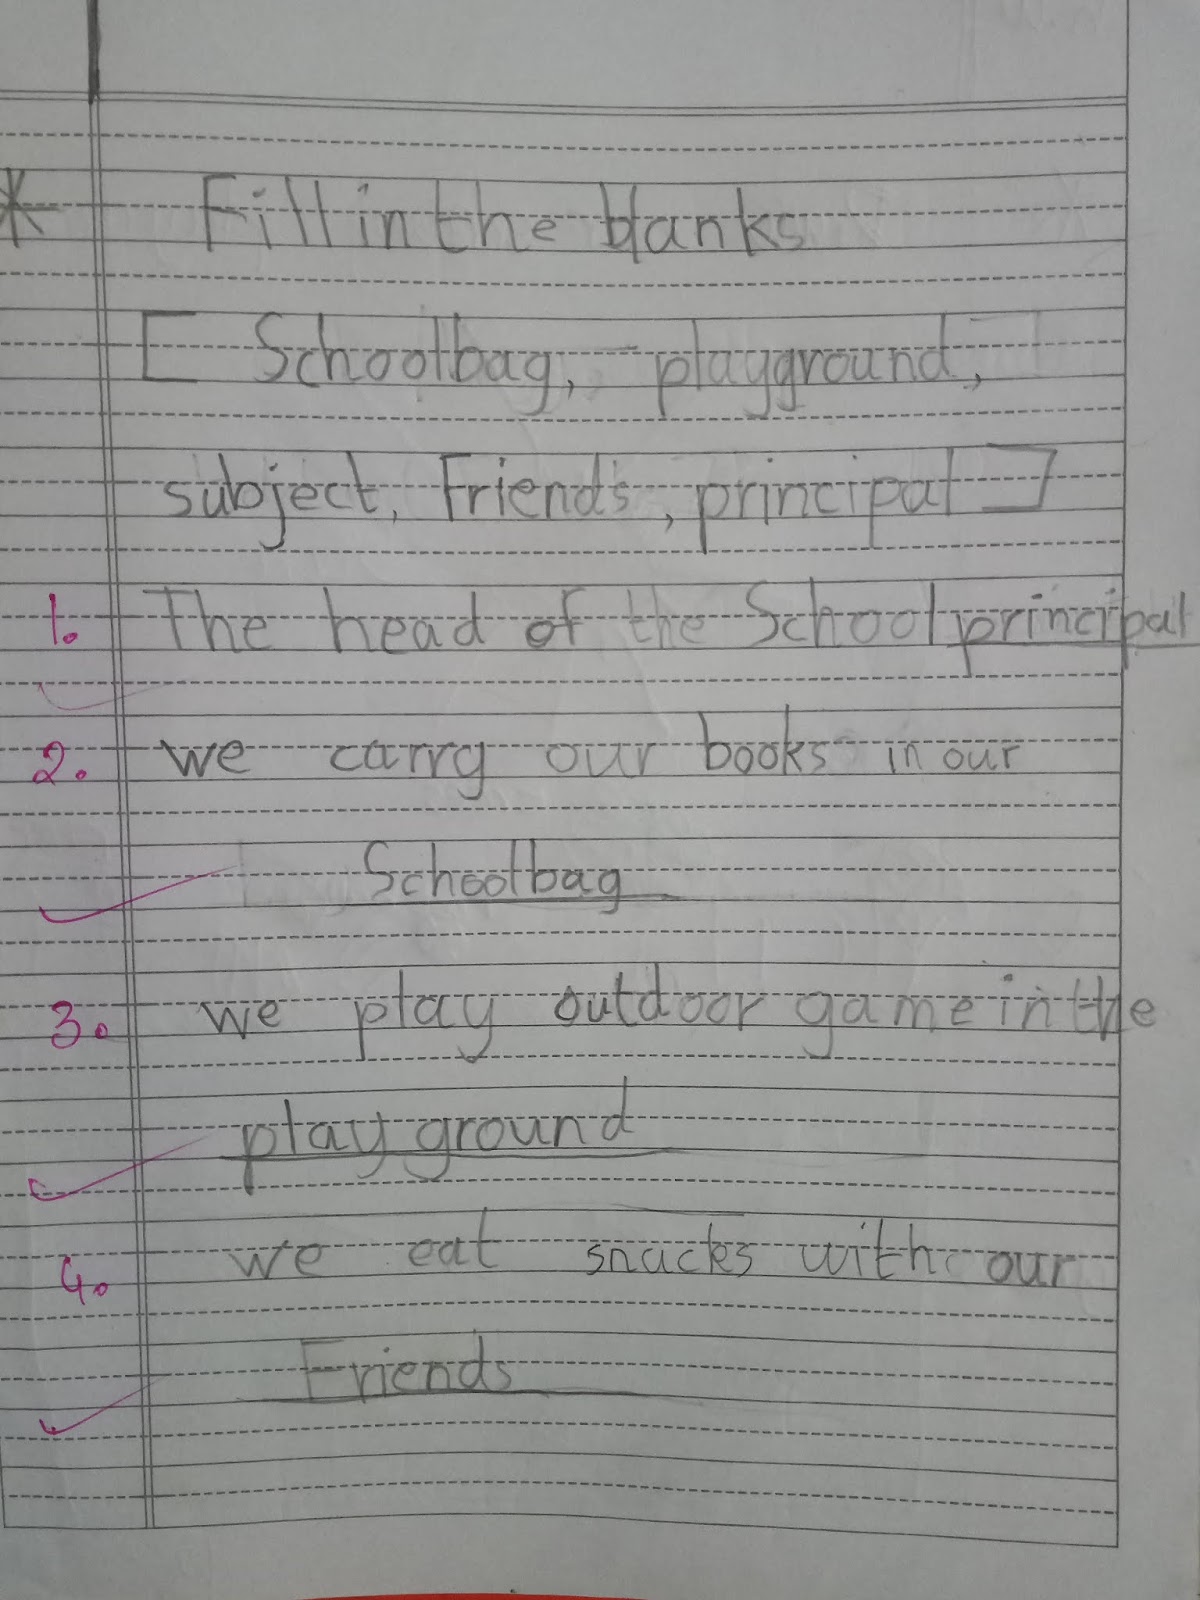 * Fill in the blanks
[ Schoolbag, playground,
subject, Friends, principal ]
1. The head of the School principal
2. we carry our books in our
Schoolbag
3. we play outdoor game in the
play ground
4. we eat snacks with our
Friends